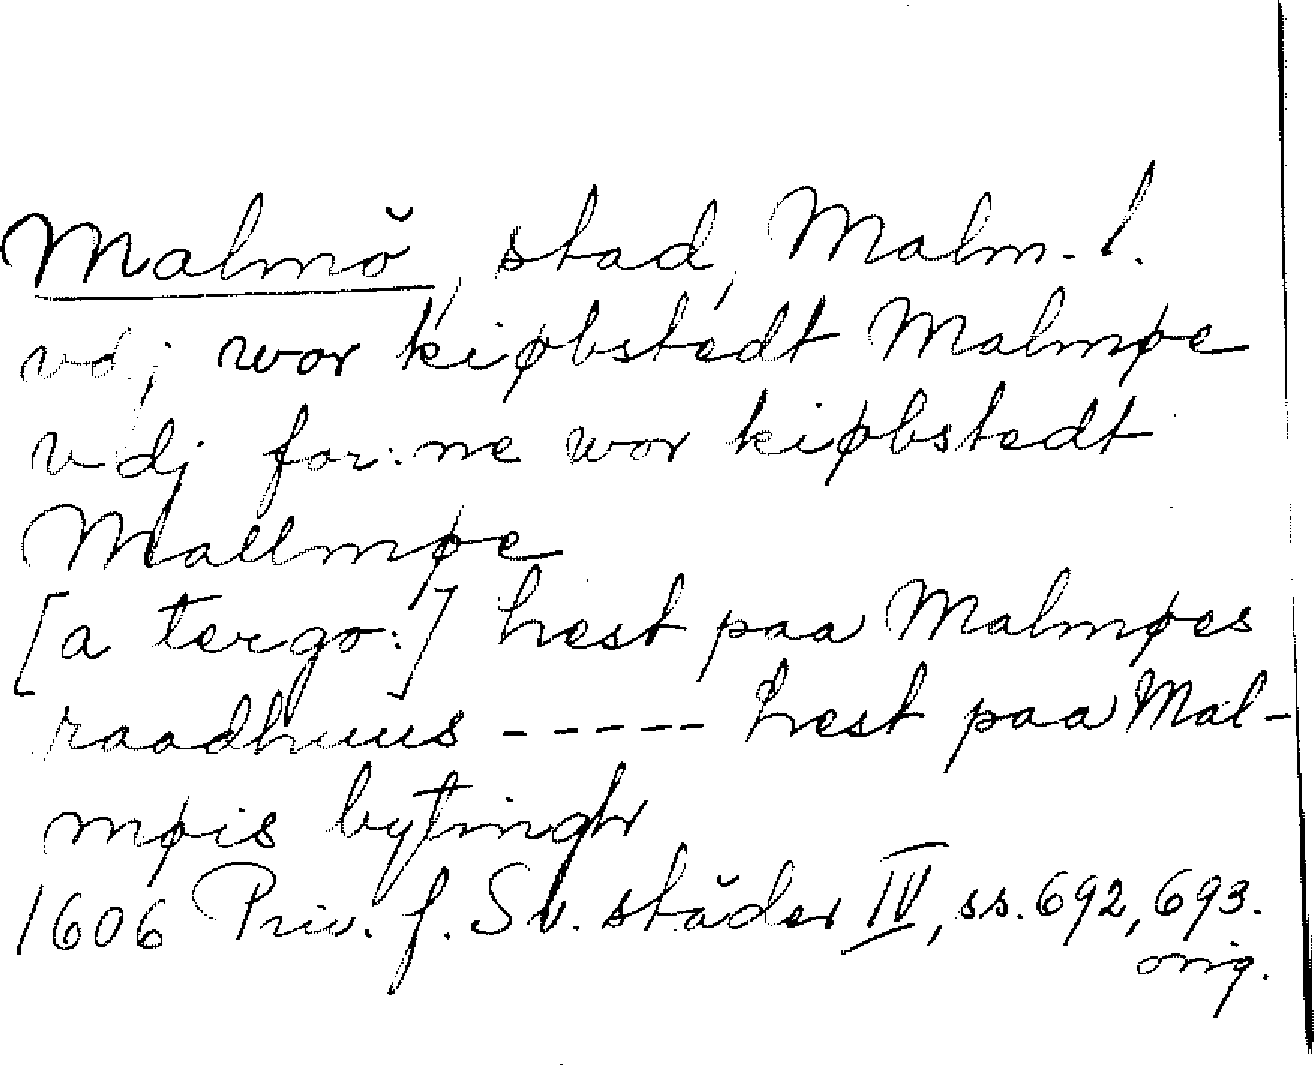 Malmö, stad, Malm. l.
vdj wor kiøbstedt Malmøe
vdj for:ne wor kiøbstedt
Mallmøe
[a tergo:] læst paa Malmøes
raadhuus ----- læst paa Mal-
møis bytingh
1606 Priv. f. Sv. städer IV, ss. 692, 693.
orig.